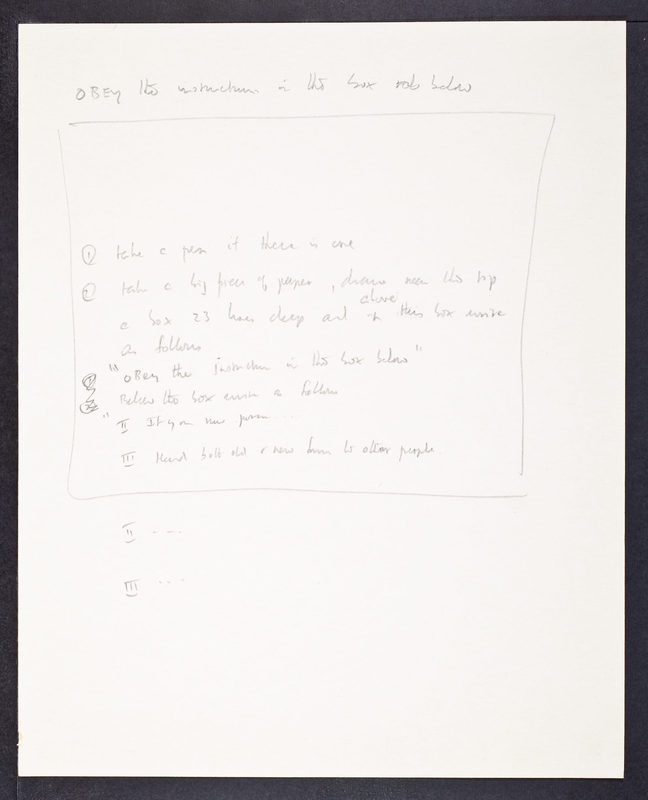 OBEY the instruction in the box below
① take a pen if there is one
② take a big piece of paper, draw near the top
above
a box 23 lines deep and this box write
as follows
"OBEY the instruction in the box below"
Below the box write as follows
" II If you
III Hand both old & new to other people.
II ----
III ---